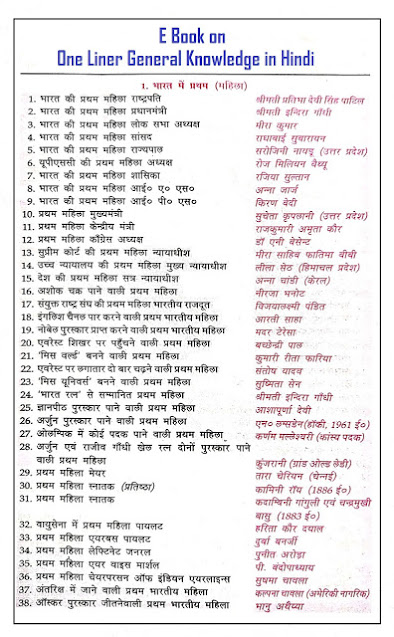 E Book on
One Liner General Knowledge in Hindi
1. भारत में प्रथम (महिला)
1. भारत की प्रथम महिला राष्ट्रपति श्रीमती प्रतिभा देवी सिंह पाटिल
2. भारत की प्रथम महिला प्रधानमंत्री श्रीमती इन्दिरा गाँधी
3. भारत की प्रथम महिला लोक सभा अध्यक्ष मीरा कुमार
4. भारत की प्रथम महिला सांसद राधाबाई सुबारायन
5. भारत की प्रथम महिला राज्यपाल सरोजिनी नायडू (उत्तर प्रदेश)
6. यूपीएससी की प्रथम महिला अध्यक्ष रोज मिलियन वैथ्यू
7. भारत की प्रथम महिला शासिका रजिया सुल्तान
8. भारत की प्रथम महिला आई० ए० एस० अन्ना जार्ज
9. भारत की प्रथम महिला आई० पी० एस० किरण बेदी
10. प्रथम महिला मुख्यमंत्री सुचेता कृपलानी (उत्तर प्रदेश)
11. प्रथम महिला केन्द्रीय मंत्री राजकुमारी अमृता कौर
12. प्रथम महिला काँग्रेस अध्यक्ष डॉ एनी बेसेन्ट
13. सुप्रीम कोर्ट की प्रथम महिला न्यायाधीश मीरा साहिब फातिमा बीबी
14. उच्च न्यायालय की प्रथम महिला मुख्य न्यायाधीश लीला सेठ (हिमाचल प्रदेश)
15. देश की प्रथम महिला सत्र न्यायाधीश अन्ना चांडी (केरल)
16. अशोक चक्र पाने वाली प्रथम महिला नीरजा भनोट
17. संयुक्त राष्ट्र संघ की प्रथम महिला भारतीय राजदूत विजयालक्ष्मी पंडित
18. इंगलिश चैनल पार करने वाली प्रथम भारतीय महिला आरती साहा
19. नोबेल पुरस्कार प्राप्त करने वाली प्रथम भारतीय महिला मदर टेरेसा
20. एवरेस्ट शिखर पर पहुँचने वाली प्रथम महिला बच्छेन्द्री पाल
21. 'मिस वर्ल्ड' बनने वाली प्रथम महिला कुमारी रीता फारिया
22. एवरेस्ट पर लगातार दो बार चढ़ने वाली प्रथम महिला संतोष यादव
23. 'मिस यूनिवर्स' बनने वाली प्रथम महिला सुष्मिता सेन
24. 'भारत रत्न' से सम्मानित प्रथम महिला श्रीमती इन्दिरा गाँधी
25. ज्ञानपीठ पुरस्कार पाने वाली प्रथम महिला आशापूर्णा देवी
26. अर्जुन पुरस्कार पाने वाली प्रथम महिला एन० लम्सडेन(हॉकी, 1961 ई०)
27. ओलम्पिक में कोई पदक पाने वाली प्रथम महिला कर्णम मल्लेश्वरी (कांस्य पदक)
28. अर्जुन एवं राजीव गाँधी खेल रत्न दोनों पुरस्कार पाने
वाली प्रथम महिला कुंजरानी (ग्रांड ओल्ड लेडी)
29. प्रथम महिला मेयर तारा चेरियन (चेन्नई)
30. प्रथम महिला स्नातक (प्रतिष्ठा) कामिनी रॉय (1886 ई०)
31. प्रथम महिला स्नातक कदाम्बिनी गांगुली एवं चन्द्रमुखी
बासु (1883 ई०)
32. वायुसेना में प्रथम महिला पायलट हरिता कौर दयाल
33. प्रथम महिला एयरबस पायलट दुर्बा बनर्जी
34. प्रथम महिला लेफ्टिनेंट जनरल पुनीत अरोड़ा
35. प्रथम महिला एयर वाइस मार्शल पी. बंदोपाध्याय
36. प्रथम महिला चेयरपरसन ऑफ इंडियन एयरलाइन्स सुषमा चावला
37. अंतरिक्ष में जाने वाली प्रथम भारतीय महिला कल्पना चावला (अमेरिकी नागरिक)
38. ऑस्कर पुरस्कार जीतनेवाली प्रथम भारतीय महिला भानु अथैय्या